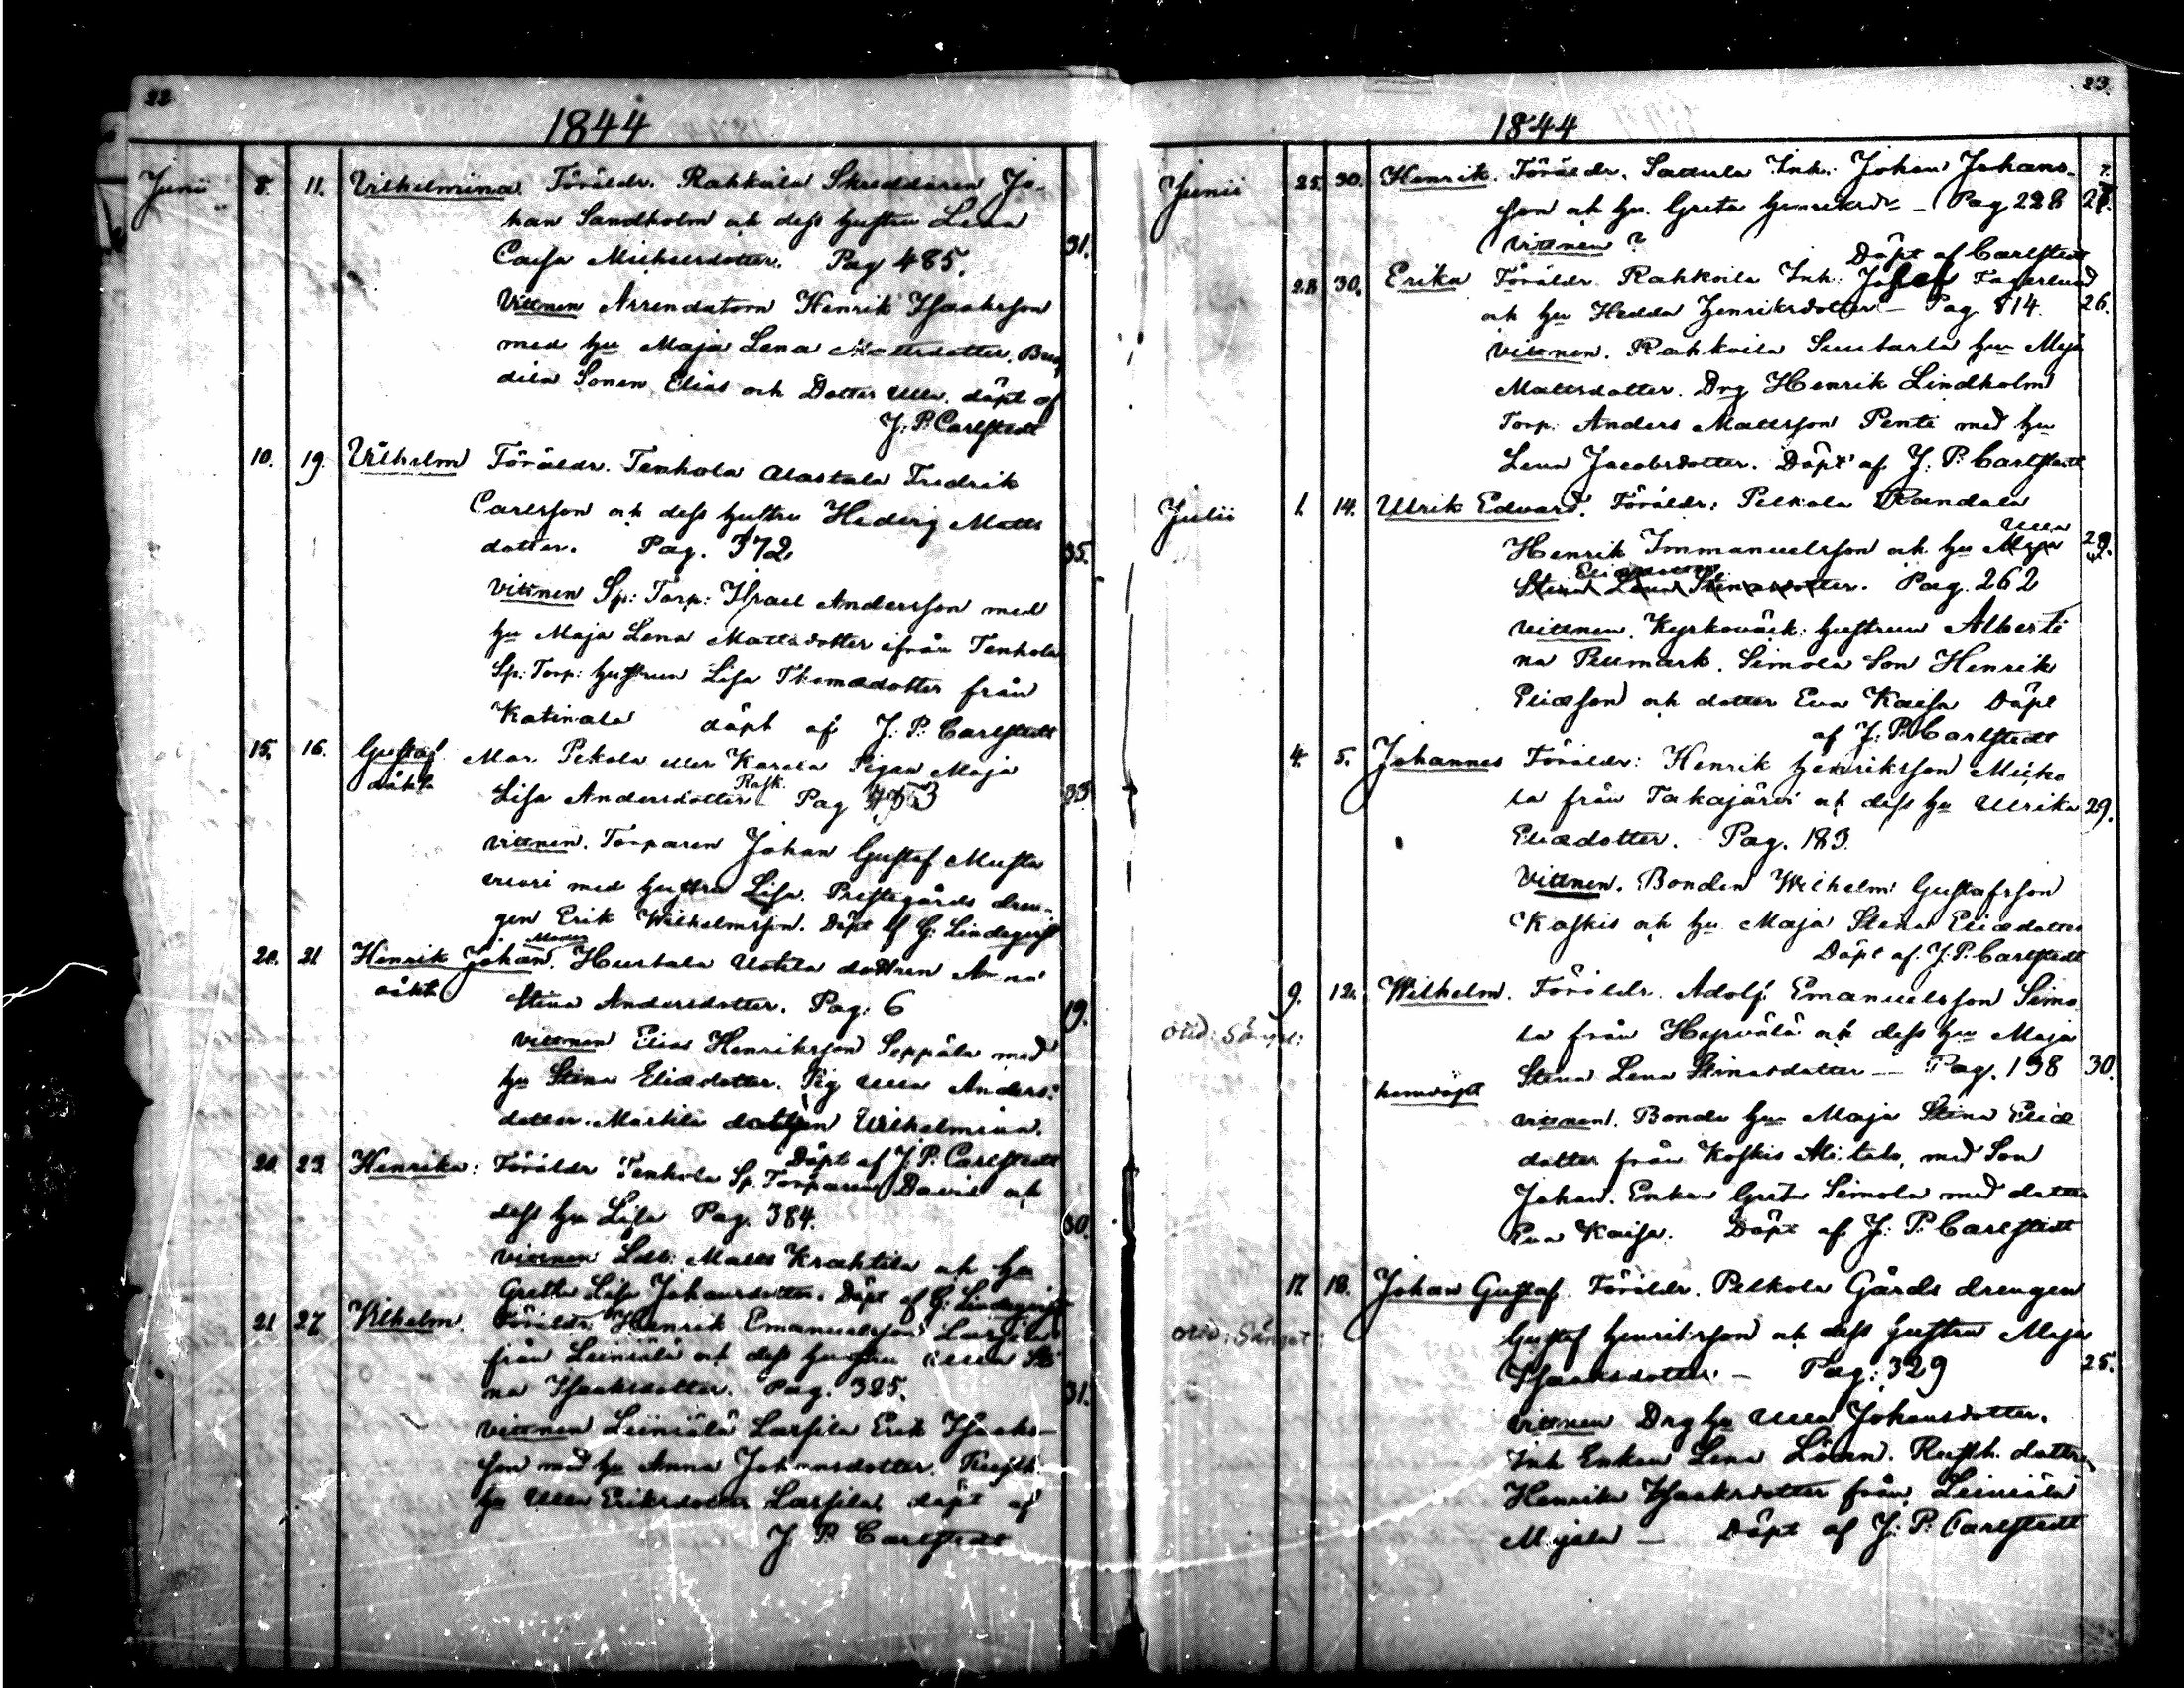 22
1844
Junii 8. 11. Vilhelmina Föräldr. Rahkoila Skreddaren Jo-
han Sandholm och dess hustru Lena
Caisa Michelsdotter. Pag 485. 31.
Vittnen Arrendatorn Henrik Isaaksson
med hu Maja Lena Mattsdotter,
dila Sonen Elias och Dotter Ulla. döpt af
J. P. Carlstedt
10. 19. Vilhelm Föräldr. Tenhola Alastala Fredrik
Carlsson och dess hustru Hedvig Matts
dotter. Pag. 372 35.
Vittnen Sp: Torp: Israel Andersson med
hu Maja Lena Mattsdotter ifrån Tenhola
Sp: Torp: hustrun Lisa Thomædotter från
Katinala döpt af J. P. Carlstedt
15. 16. Gustaf Mor. Pekola eller Karela Pigan Maja
oäkta Lisa Andersdotter Pag 33
vittnen. Torparen Johan Gustaf Musta
vuori med hustru Lisa. Prestegårds dren-
gen Erik Wilhelmsson. Döpt af G: Lindeqvist
20. 21. Henrik Johan. Moder Hurtala Uotila dottren Anna
oäkta Stina Andersdotter. Pag: 6 19.
vittnen Elias Henriksson Seppälä med
hu Stina Eliædotter. Pig Ulla Anders:
dotter. Marttila dottren Wilhelmina.
Döpt af J. P. Carlstedt
20. 23. Henrika: Föräldr Tenhola Sp. Torparen David och
dess hu Lisa Pag. 384. 30.
vittnen Matts Krahtila och hu
Greta Lisa Johansdotter. Döpt af G: Lindeqvist
21 27. Vilhelm. Föräldr Henrik Emanuelsson Lassila
från Leiniälä och dess hustru Ulla Sti
na Isaaksdotter. Pag. 325. 31.
vittnen Leiniälä Lassila Erik Isaaks-
son med hu Anna Johansdotter.
hu Ulla Eriksdotter Lassila döpt af
J. P. Carlstedt
23.
1844
Junii 25. 30. Henrik. Föräldr. Sattula Inh: Johan Johans- ?
son och hu. Greta Henriksdr - Pag 228
Vittnen?
Döpt af Carlstedt
28. 30. Erika Föräldr. Rahkoila Inh: Josef Fagerlund
och hu Hedda Henriksdotter - Pag 814. 26.
vittnen. Rahkoila Suutarla hu Maja
Mattsdotter. Drg Henrik Lindholm
Torp: Anders Mattsson Pente med hu
Lena Jacobsdotter. Döpt af J: P: Carlstedt
Julii 1. 14. Ulrik Edvard. Föräldr: Pelkola Randala
Ulla
Henrik Immanuelsson och hu Maja
Eliædotter
Stina Lena Stinasdotter. Pag. 262
vittnen. hustrun Alberti
na Pellmark. Simola Son Henrik
Eliæson och dotter Eva Kaisa Döpt
af J: P. Carlstedt
4. 5. Johannes Föräldr: Henrik Henriksson Micko
la från Takajärvi och dess hu Ulrika 29.
Eliædotter. Pag. 183.
Vittnen. Bonden Wilhelm Gustafsson
Koskis och hu Maja Stina Eliædotter
Döpt af. J: P. Carlstedt
9. 12. Wilhelm. Föräldr. Adolf Emanuelsson Simo
la från Hyrvälä och dess hu Maja
Stina Lena Stinasdotter — Pag. 198 30.
hemdöpt vittnen. Bonde hu Maja Stina Eliæ
dotter från Koskis Ali:talo, med Son
Johan. Enkan Greta Simola med dotter
Eva Kaisa. Döpt af J: P. Carlstedt
17. 18. Johan Gustaf Föräldr. Pelkola Gårds drengen
Gustaf Henriksson och dess hustru Maja
Isaaksdotter. - Pag: 329 25.
vittnen Drg hu Ulla Johansdotter.
Inh Enkan Lena Lönn. Rusth. dotter
Henrika Isaaksdotter från Leiniälä
Myllä — Döpt af J: P. Carlstedt